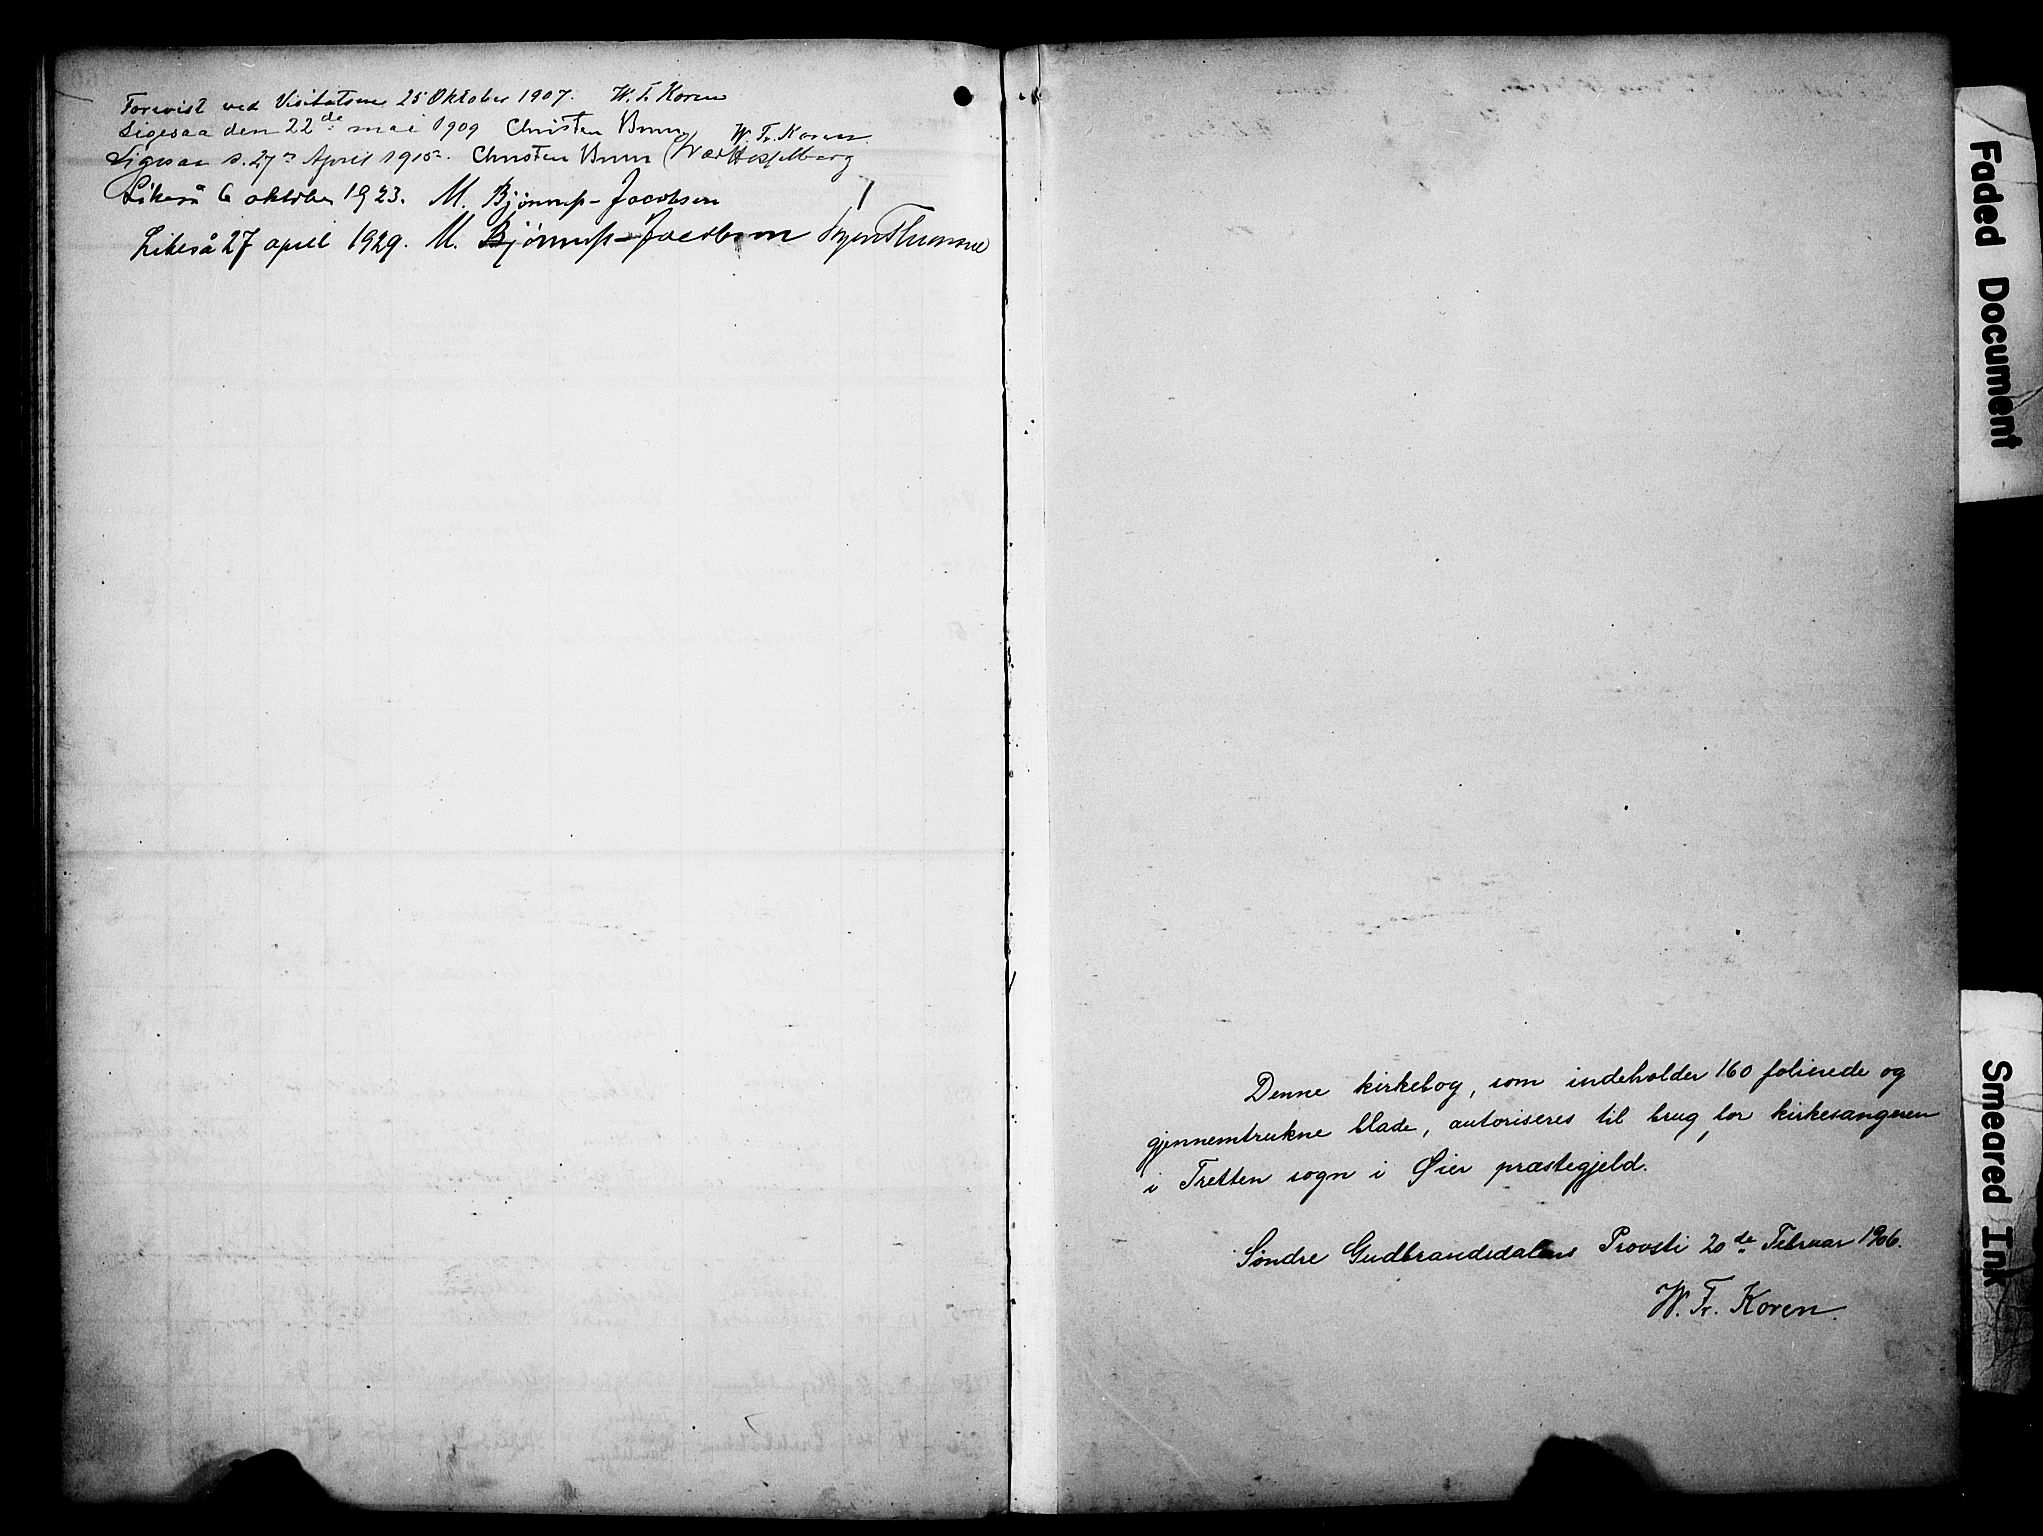 Forevist ved Visitatsen 25 Oktober 1907. W. Fr. Koren
Ligesaa den 22de mai 1909 Christen Brun W. Fr. Koren.
Ligesaa d. 27de April 1915. Christen Brun Hasselberg
Likeså 6 oktober 1923. M. Bjønnes-Jacobsen
Likeså 27 april 1929. M. Bjønnes-Jacobsen
Denne kirkebog, som indeholder 160 folierede og
gjennemtrukne blade, autoriseres til brug for kirkesangeren
i Tretten sogn i Øier præstegjeld.
Søndre Gudbrandsdalens Provsti 20de Februar 1906.
W. Fr. Koren.
Faded Document
Smeared Ink